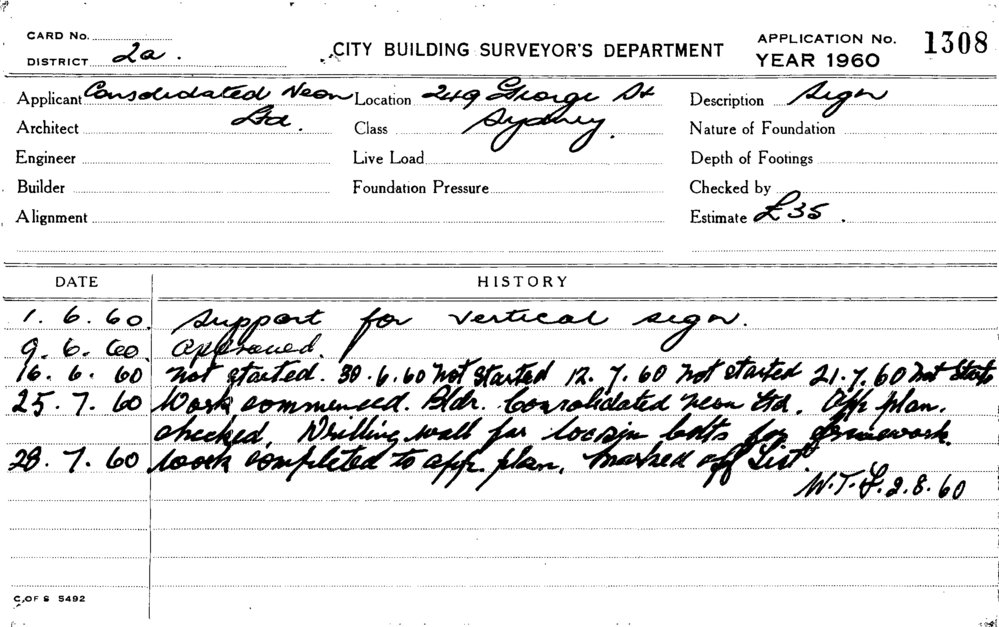 CARD No.
DISTRICT 2a.
CITY BUILDING SURVEYOR'S DEPARTMENT
APPLICATION No. 1308
YEAR 1960
Applicant Consolidated Neon Location 249 George St Description Sign
Architect Ltd. Class Sydney. Nature of Foundation
Engineer Live Load Depth of Footings
Builder Foundation Pressure Checked by
Alignment Estimate £35.
DATE HISTORY
1.6.60 Support for vertical sign.
9.6.60. Approved.
16.6.60 Not started. 30.6.60 Not Started 12.7.60 Not started 21.7.60 Not Started
25.7.60 Work commenced. Bldr. Consolidated Neon Ltd. App plan.
checked. Drilling wall for bolts for
28.7.60 Work completed to app. plan. Marked off List.
W.T. 2.8.60
C. OF S 5492